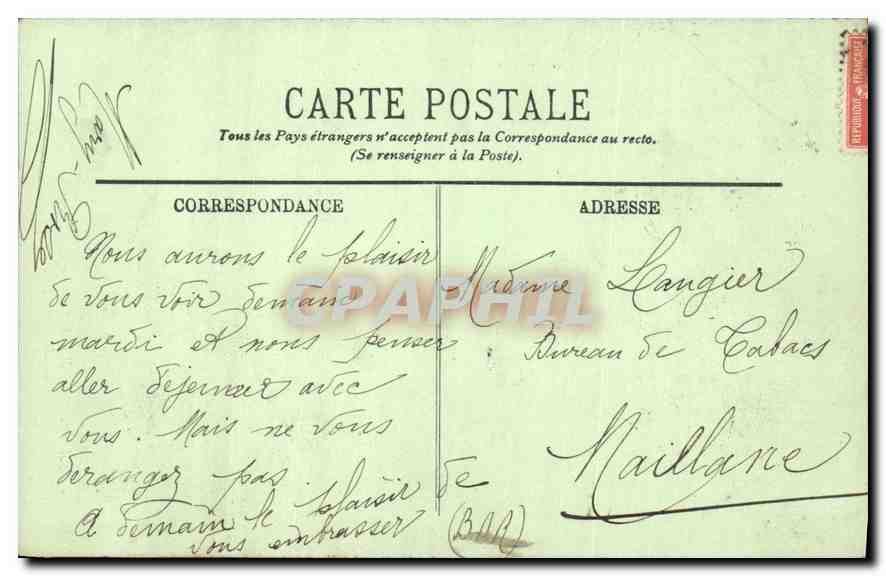 CARTE POSTALE
Tous les Pays étrangers n'acceptent pas la Correspondance au recto.
(Se renseigner à la Poste).
REPUBLIQUE FRANÇAISE
CORRESPONDANCE
Nous aurons le plaisir
de vous voir demain
mardi et nous penser
aller dejeuner avec
vous. Mais ne vous
deranger pas
A demain le plaisir de
vous embrasser
ADRESSE
Madame Laugier
Bureau de Tabacs
Maillane
(BDR)
CPAPHIL